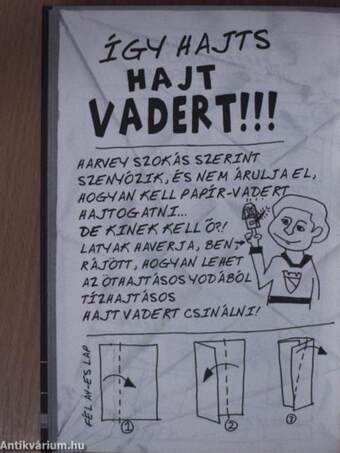 ÍGY HAJTS
HAJT
VADERT!!!
HARVEY SZOKÁS SZERINT
SZENYÓZIK, ÉS NEM ÁRULJA EL,
HOGYAN KELL PAPÍR-VADERT
HAJTOGATNI...
DE KINEK KELL Ő?!
LATYAK HAVERJA, BEN,
RÁJÖTT, HOGYAN LEHET
AZ ÖTHAJTÁSOS YODÁBÓL
TÍZHAJTÁSOS
HAJT VADERT CSINÁLNI!
FÉL A4-ES LAP
1
2
3
Antikvárium.hu